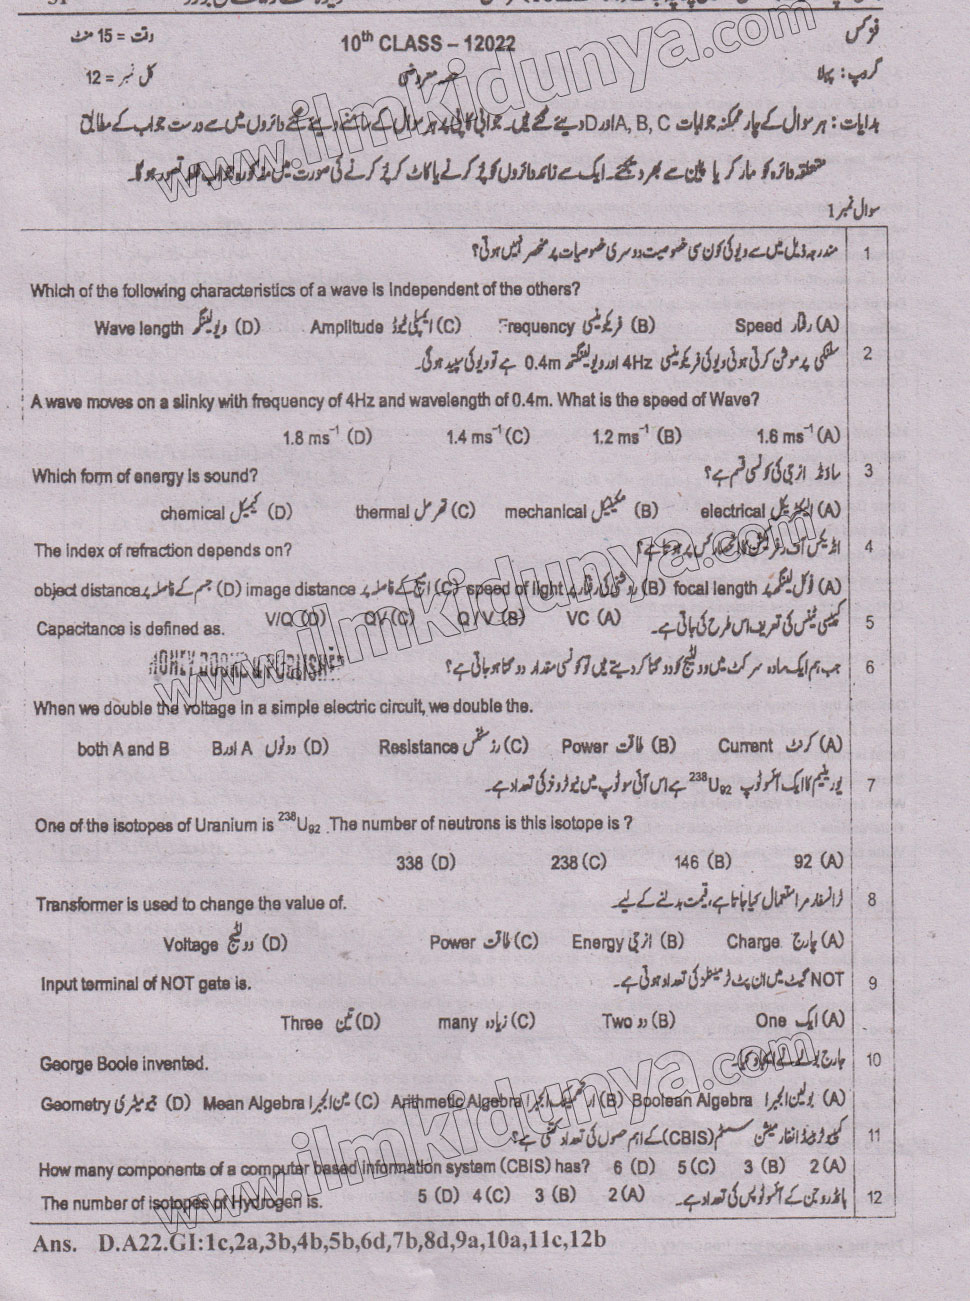 فزکس
10th CLASS – 12022
وقت = 15 منٹ
گروپ: پہلا
حصہ معروضی
کل نمبر = 12
ہدایات: ہر سوال کے چار ممکنہ جوابات A, B, C اور D دیئے گئے ہیں۔ جوابی کاپی پر ہر سوال کے سامنے دیئے گئے دائروں میں سے درست جواب کے مطابق
متعلقہ دائرہ کو مارکر یا پین سے بھر دیجئے۔ ایک سے زائد دائروں کو پُر کرنے یا کاٹ کر پُر کرنے کی صورت میں مذکورہ جواب غلط تصور ہوگا۔
سوال نمبر 1
1 مندرجہ ذیل میں سے ویو کی کون سی خصوصیت دوسری خصوصیات پر منحصر نہیں ہوتی؟
Which of the following characteristics of a wave is Independent of the others?
(A) رفتار Speed (B) فریکوئنسی Frequency (C) ایمپلی ٹیوڈ Amplitude (D) ویولینگتھ Wave length
2 سلنکی پر موشن کرتی ہوئی ویو کی فریکوئنسی 4Hz اور ویولینگتھ 0.4m ہے تو ویو کی سپیڈ ہوگی۔
A wave moves on a slinky with frequency of 4Hz and wavelength of 0.4m. What is the speed of Wave?
1.6 ms⁻¹ (A) 1.2 ms⁻¹ (B) 1.4 ms⁻¹ (C) 1.8 ms⁻¹ (D)
3 ساؤنڈ انرجی کی کونسی قسم ہے؟ Which form of energy is sound?
(A) الیکٹریکل electrical (B) مکینیکل mechanical (C) تھرمل thermal (D) کیمیکل chemical
4 انڈیکس آف رفریکشن کا انحصار کس پر ہوتا ہے؟ The index of refraction depends on?
(A) فوکل لینگتھ پر focal length (B) روشنی کی رفتار پر speed of light (C) امیج کے فاصلہ پر image distance (D) جسم کے فاصلہ پر object distance
5 کپیسی ٹینس کی تعریف اس طرح کی جاتی ہے۔ VC (A) Q / V (B) QV (C) V/Q (D) Capacitance is defined as.
6 جب ہم ایک سادہ سرکٹ میں وولٹیج کو دوگنا کر دیتے ہیں تو کونسی مقدار دوگنا ہو جاتی ہے؟
When we double the voltage in a simple electric circuit, we double the.
(A) کرنٹ Current (B) طاقت Power (C) رزسٹنس Resistance (D) دونوں A اور B both A and B
7 یورینیم کا ایک آئسوٹوپ ²³⁸U₉₂ ہے اس آئی سوٹوپ میں نیوٹرونز کی تعداد ہے۔
One of the isotopes of Uranium is ²³⁸U₉₂ .The number of neutrons is this isotope is ?
92 (A) 146 (B) 238 (C) 338 (D)
8 ٹرانسفارمر استعمال کیا جاتا ہے، قیمت بدلنے کے لیے۔ Transformer is used to change the value of.
(A) چارج Charge (B) انرجی Energy (C) طاقت Power (D) وولٹیج Voltage
9 NOT گیٹ میں ان پٹ ٹرمینلز کی تعداد ہوتی ہے۔ Input terminal of NOT gate is.
(A) ایک One (B) دو Two (C) زیادہ many (D) تین Three
10 جارج بولے نے ایجاد کیا۔ George Boole invented.
(A) بولین الجبرا Boolean Algebra (B) ارتھمیٹک الجبرا Arithmetic Algebra (C) مین الجبرا Mean Algebra (D) جیومیٹری Geometry
11 کمپیوٹر بیسڈ انفارمیشن سسٹم (CBIS) کے اہم حصوں کی تعداد کتنی ہے؟
How many components of a computer based information system (CBIS) has? 2 (A) 3 (B) 5 (C) 6 (D)
12 ہائڈروجن کے آئسوٹوپس کی تعداد ہے۔ 2 (A) 3 (B) 4 (C) 5 (D) The number of isotopes of Hydrogen is.
Ans. D.A22.GI:1c,2a,3b,4b,5b,6d,7b,8d,9a,10a,11c,12b
www.ilmkidunya.com
www.ilmkidunya.com
www.ilmkidunya.com